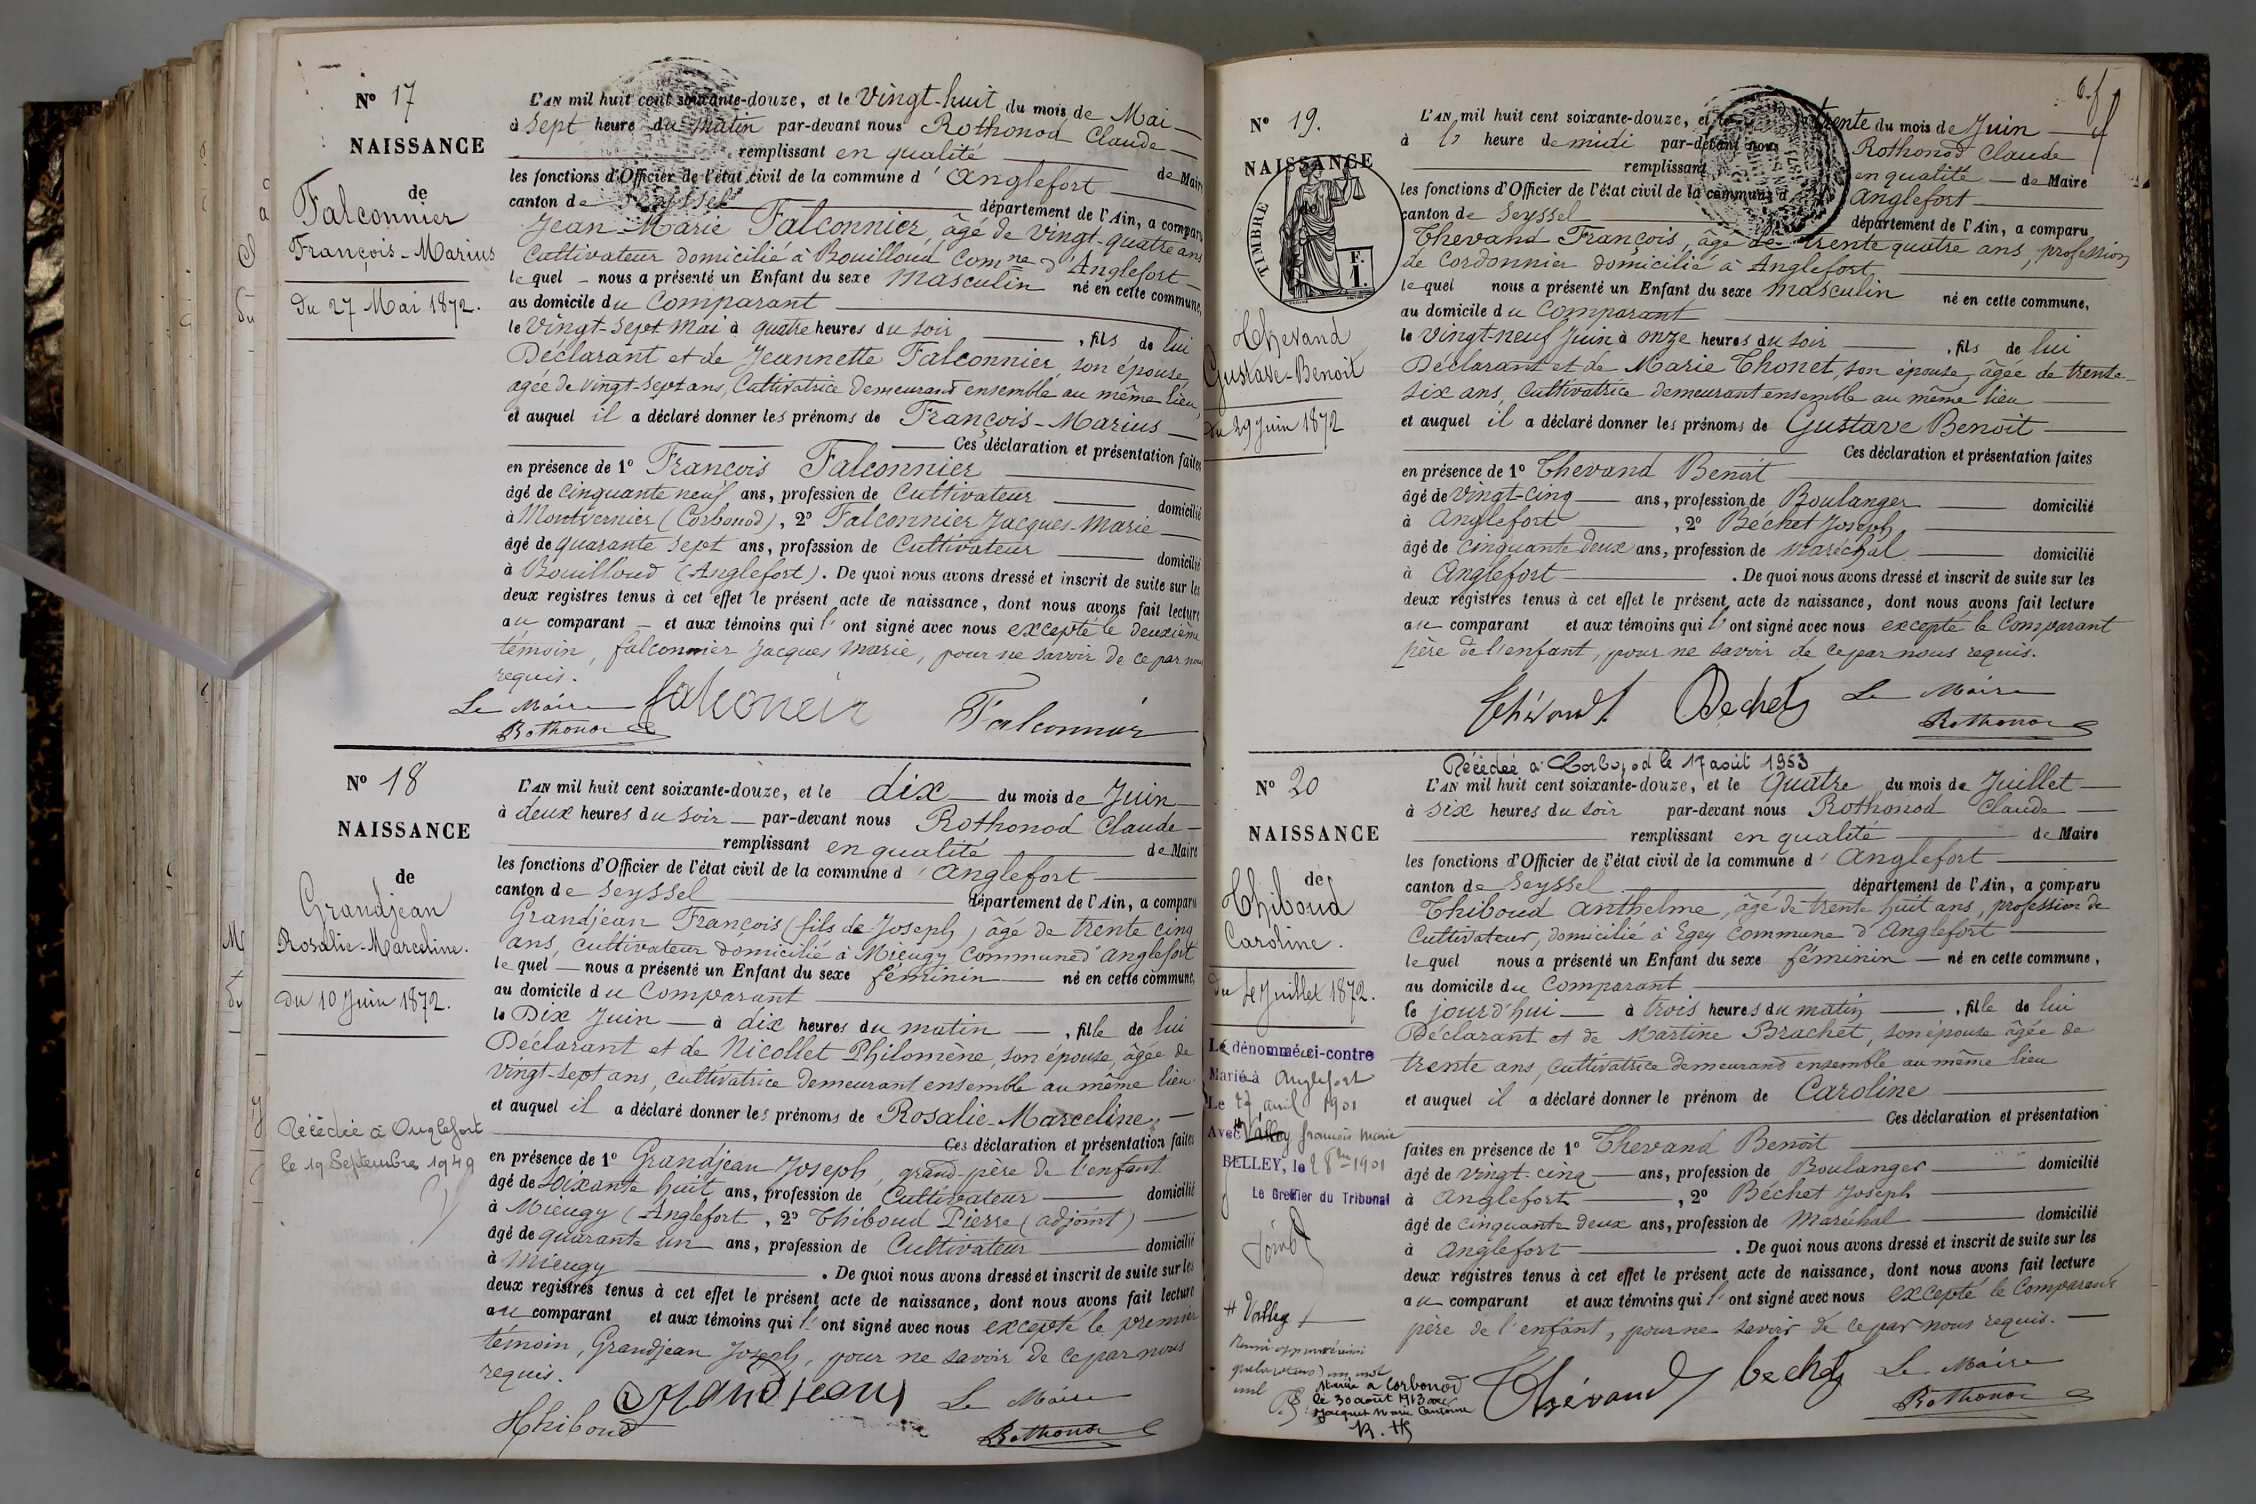 N° 17
NAISSANCE
de
Falconnier
François-Marius
du 27 Mai 1872.
L'AN mil huit cent soixante-douze, et le Vingt-huit du mois de Mai
à Sept heure du Matin par-devant nous Rothonod Claude
remplissant en qualité de Maire
les fonctions d'Officier de l'état civil de la commune d'Anglefort
canton de Seyssel département de l'Ain, a comparu
Jean-Marie Falconnier, âgé de vingt-quatre ans
Cultivateur domicilié à Bouilloud Comne d'Anglefort
lequel nous a présenté un Enfant du sexe Masculin né en cette commune,
au domicile du Comparant
le Vingt-Sept Mai à quatre heures du soir, fils de lui
Déclarant et de Jeannette Falconnier, son épouse
agée de vingt-sept ans, Cultivatrice demeurand ensemble au même lieu,
et auquel il a déclaré donner les prénoms de François-Marius
Ces déclaration et présentation faites
en présence de 1° François Falconnier
âgé de cinquante neuf ans, profession de Cultivateur domicilié
à Montvernier (Corbonod), 2° Falconnier Jacques-Marie
âgé de quarante sept ans, profession de Cultivateur domicilié
à Bouilloud (Anglefort). De quoi nous avons dressé et inscrit de suite sur les
deux registres tenus à cet effet le présent acte de naissance, dont nous avons fait lecture
au comparant et aux témoins qui l'ont signé avec nous excepté le deuxième
témoin, falconnier Jacques Marie, pour ne savoir de ce par nous
requis.
Le Maire falconeir Falconnier
Rothonod
N° 18
NAISSANCE
de
Grandjean
Rosalie-Marceline.
du 10 Juin 1872.
Décédée à Anglefort
le 19 Septembre 1949
L'AN mil huit cent soixante-douze, et le dix du mois de Juin
à deux heures du soir par-devant nous Rothonod Claude
remplissant en qualité de Maire
les fonctions d'Officier de l'état civil de la commune d'Anglefort
canton de Seyssel département de l'Ain, a comparu
Grandjean François (fils de Joseph) âgé de trente cinq
ans, cultivateur domicilié à Mieugy Commune d'Anglefort
lequel nous a présenté un Enfant du sexe féminin né en cette commune,
au domicile du Comparant
le Dix Juin à dix heures du matin, fille de lui
Déclarant et de Nicollet Philomène, son épouse, âgée de
vingt-sept ans, cultivatrice demeurant ensemble au même lieu
et auquel il a déclaré donner les prénoms de Rosalie-Marceline
Ces déclaration et présentation faites
en présence de 1° Grandjean Joseph, grand-père de l'enfant
âgé de soixante huit ans, profession de Cultivateur domicilié
à Mieugy (Anglefort, 2° Thiboud Pierre (adjoint)
âgé de quarante un ans, profession de Cultivateur domicilié
à Mieugy. De quoi nous avons dressé et inscrit de suite sur les
deux registres tenus à cet effet le présent acte de naissance, dont nous avons fait lecture
au comparant et aux témoins qui l'ont signé avec nous excepté le premier
témoin, Grandjean Joseph, pour ne savoir de ce par nous
requis.
Grandjean Le Maire
Thiboud Rothonod
N° 19.
NAISSANCE
de
TIMBRE
F.
1.
Thevand
Gustave-Benoit
du 29 Juin 1872
L'AN mil huit cent soixante-douze, et le trente du mois de Juin
à heure de midi par-devant nous Rothonod Claude
remplissant en qualité de Maire
les fonctions d'Officier de l'état civil de la commune d'Anglefort
canton de Seyssel département de l'Ain, a comparu
Thevand François, âgé de trente quatre ans, profession
de Cordonnier domicilié à Anglefort
lequel nous a présenté un Enfant du sexe masculin né en cette commune,
au domicile du Comparant
le Vingt-neuf Juin à onze heures du soir, fils de lui
Déclarant et de Marie Thonet, son épouse, âgée de trente
six ans, Cultivatrice demeurant ensemble au même lieu
et auquel il a déclaré donner les prénoms de Gustave Benoit
Ces déclaration et présentation faites
en présence de 1° Thevand Benoit
âgé de Vingt-cinq ans, profession de Boulanger domicilié
à Anglefort, 2° Béchet Joseph
âgé de cinquante deux ans, profession de Maréchal domicilié
à Anglefort. De quoi nous avons dressé et inscrit de suite sur les
deux registres tenus à cet effet le présent acte de naissance, dont nous avons fait lecture
au comparant et aux témoins qui l'ont signé avec nous excepté le Comparant
père de l'enfant, pour ne savoir de ce par nous requis.
Thévand Bechet Le Maire
Rothonod
Décédée à Corbonod le 17 août 1953
N° 20
NAISSANCE
de
Thiboud
Caroline.
du 4 Juillet 1872.
Le dénommé ci-contre
Marié à Anglefort
Le 27 avril 1901
Avec Valley françois Marie
BELLEY, le 1901
Le Greffier du Tribunal
# Valley
Mariée à Corbonod
le 30 août 1913 avec
Jacquet Marie Antoine
L'AN mil huit cent soixante-douze, et le Quatre du mois de Juillet
à six heures du soir par-devant nous Rothonod Claude
remplissant en qualité de Maire
les fonctions d'Officier de l'état civil de la commune d'Anglefort
canton de Seyssel département de l'Ain, a comparu
Thiboud Anthelme, âgé de trente huit ans, profession de
Cultivateur, domicilié à Egey Commune d'Anglefort
lequel nous a présenté un Enfant du sexe féminin né en cette commune,
au domicile du Comparant
le jourd'hui à trois heures du matin, fille de lui
Déclarant et de Martine Brachet, son épouse âgée de
trente ans, Cultivatrice demeurand ensemble au même lieu
et auquel il a déclaré donner le prénom de Caroline
Ces déclaration et présentation
faites en présence de 1° Thevand Benoit
âgé de Vingt-cinq ans, profession de Boulanger domicilié
à Anglefort, 2° Béchet Joseph
âgé de cinquante deux ans, profession de Maréchal domicilié
à Anglefort. De quoi nous avons dressé et inscrit de suite sur les
deux registres tenus à cet effet le présent acte de naissance, dont nous avons fait lecture
au comparant et aux témoins qui l'ont signé avec nous excepté le Comparant
père de l'enfant, pour ne savoir de ce par nous requis.
Thévand bechet Le Maire
Rothonod